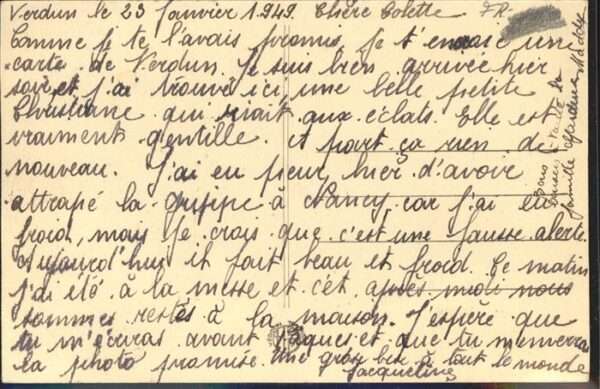 Verdun le 23 Janvier 1949. Chère Colette
Comme je te l'avais promis, je t'envoie une
carte de Verdun. Je suis bien arrivée hier
soir et j'ai trouvé ici une belle petite
Christiane qui riait aux éclats. Elle est
vraiment gentille. et part ça rien de
nouveau. J'ai eu peur hier d'avoir
attrapé la grippe à Nancy car j'ai eu
froid, mais je crois que c'est une fausse alerte.
Aujourd'hui il fait beau et froid. Ce matin
j'ai été à la messe et cet après midi nous
sommes restés à la maison. J'espère que
tu m'écriras avant Pâques et que tu m'enverras
la photo promise. Une grosse bise à tout le monde
Jacqueline
Bons
baisers à toute la
famille